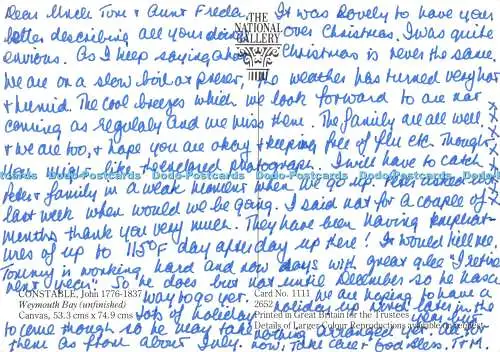 Dear Uncle Tom & Aunt Freda,
It was lovely to have your
letter describing all your
over Christmas. I was quite
envious. As I keep saying
Christmas is never the same.
THE
NATIONAL
GALLERY
We are on a slow boil at present, the weather has turned very hot
& humid. The cool breezes which we look forward to are not
coming as regularly and we miss them. The family are all well
& we are too, & hope you are okay & keeping free of flu etc. Thought
you would like the enclosed photograph. I will have to catch
Dodo-Postcards Dodo-Postcards Dodo-Postcards Dodo-Postcards
Peter & family in a weak moment when we go up. Peter asked
last week when would we be going. I said not for a couple of
months thank you very much. They have been having temperat-
ures of up to 115°F day after day up there! It would kill me.
Tommy is working hard and now days with great glee "I retire
next year". So he does but not until December so he has a
CONSTABLE, John 1776-1837
Weymouth Bay (unfinished)
Canvas, 53.3 cms x 74.9 cms
Card No. 1111
2652
Printed in Great Britain for the Trustees
Details of Larger Colour Reproductions available on request
way to go yet. We are hoping to have a
lots of holiday holiday up north later in the
to come though so he may take year but
them as from about July. nothing arranged yet. All for
now. Take care & God Bless. TTM.